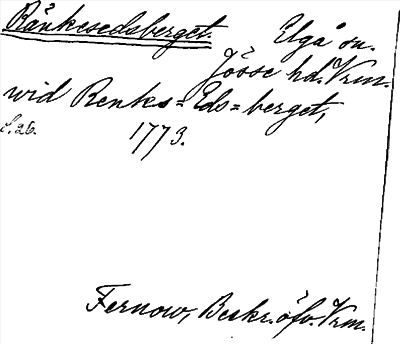 Ränkesedsberget. Elgå sn.
Jösse hd. Vrm.
wid Renks=Eds=berget,
s. 26. 1773.
Fernow, Beskr. öfv. Vrm.